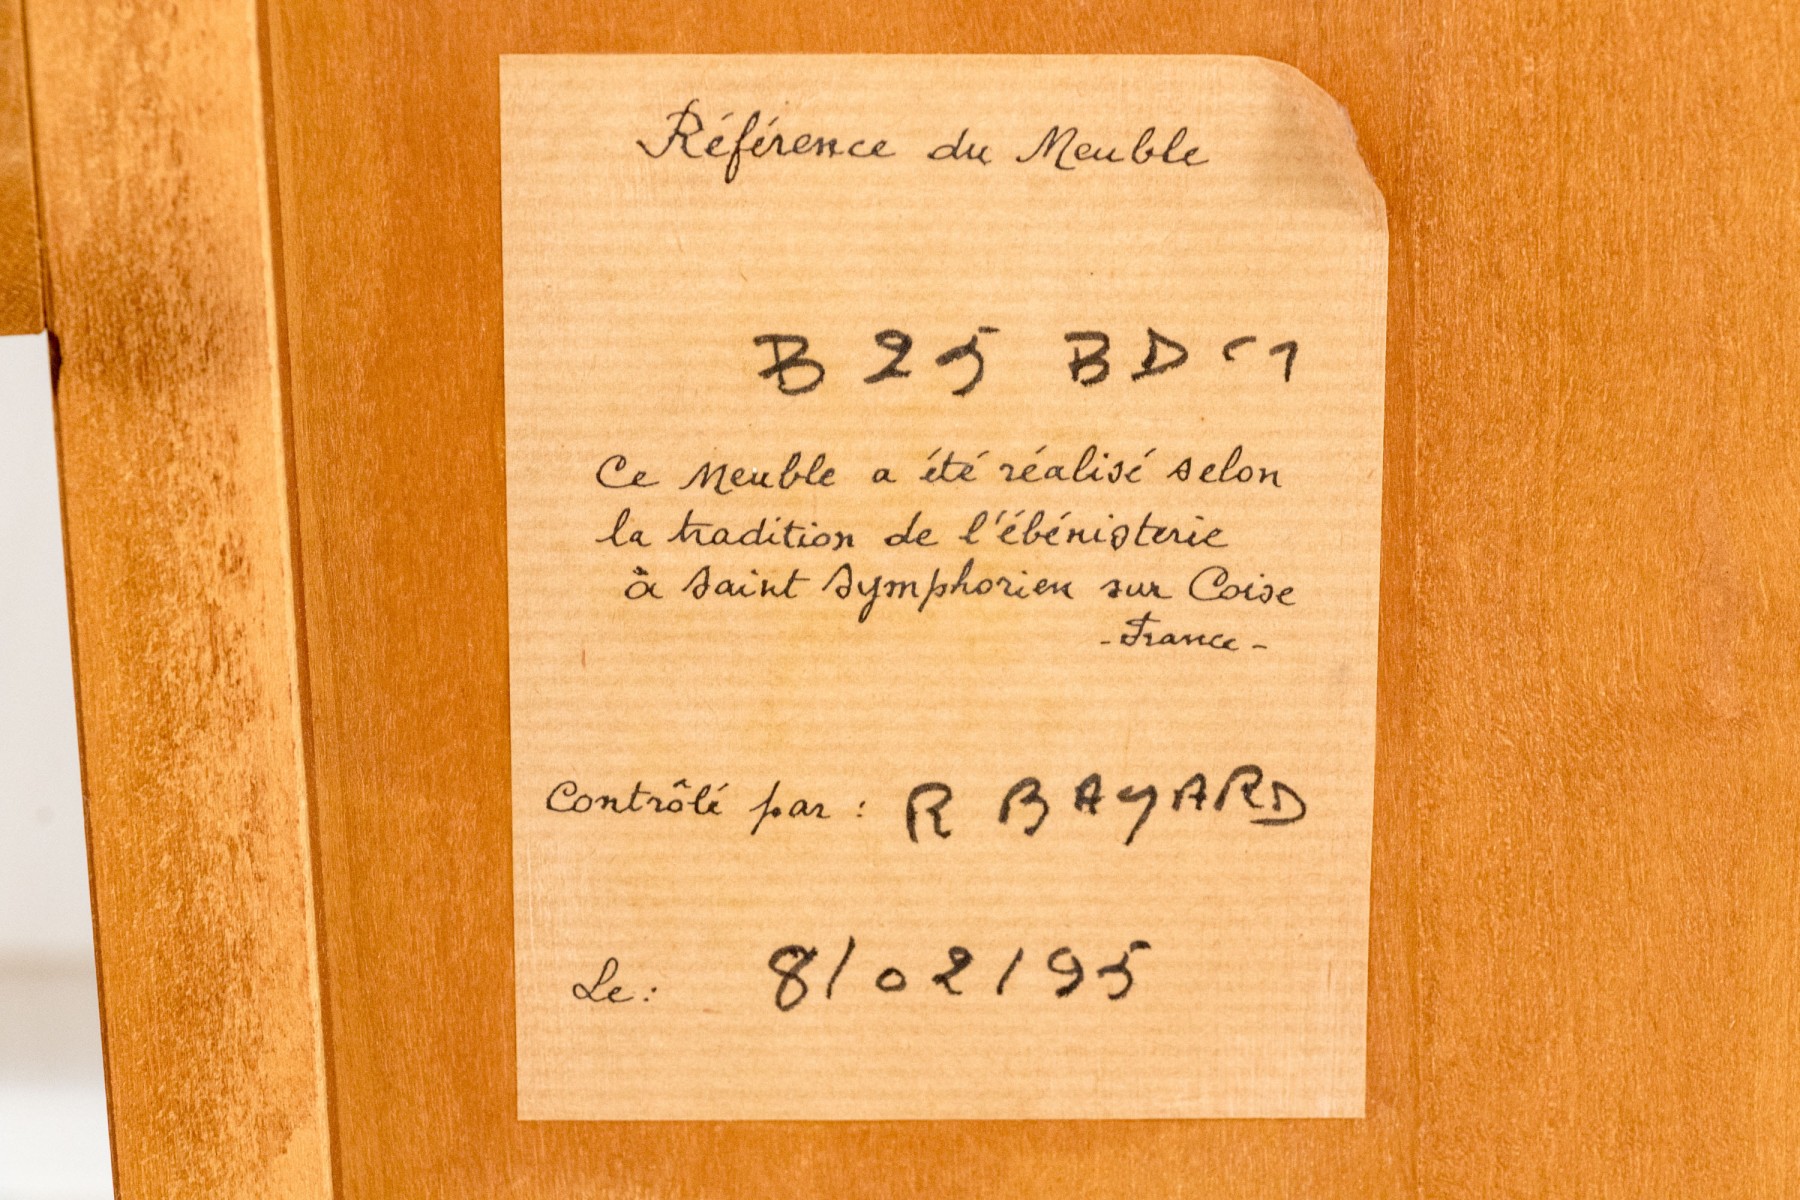 Référence du Meuble
B 25 BD
Ce Meuble a été réalisé selon
la tradition de l'ébénisterie
à saint symphorien sur Coise
- France -
Contrôlé par : R BAYARD
Le : 8/02/95